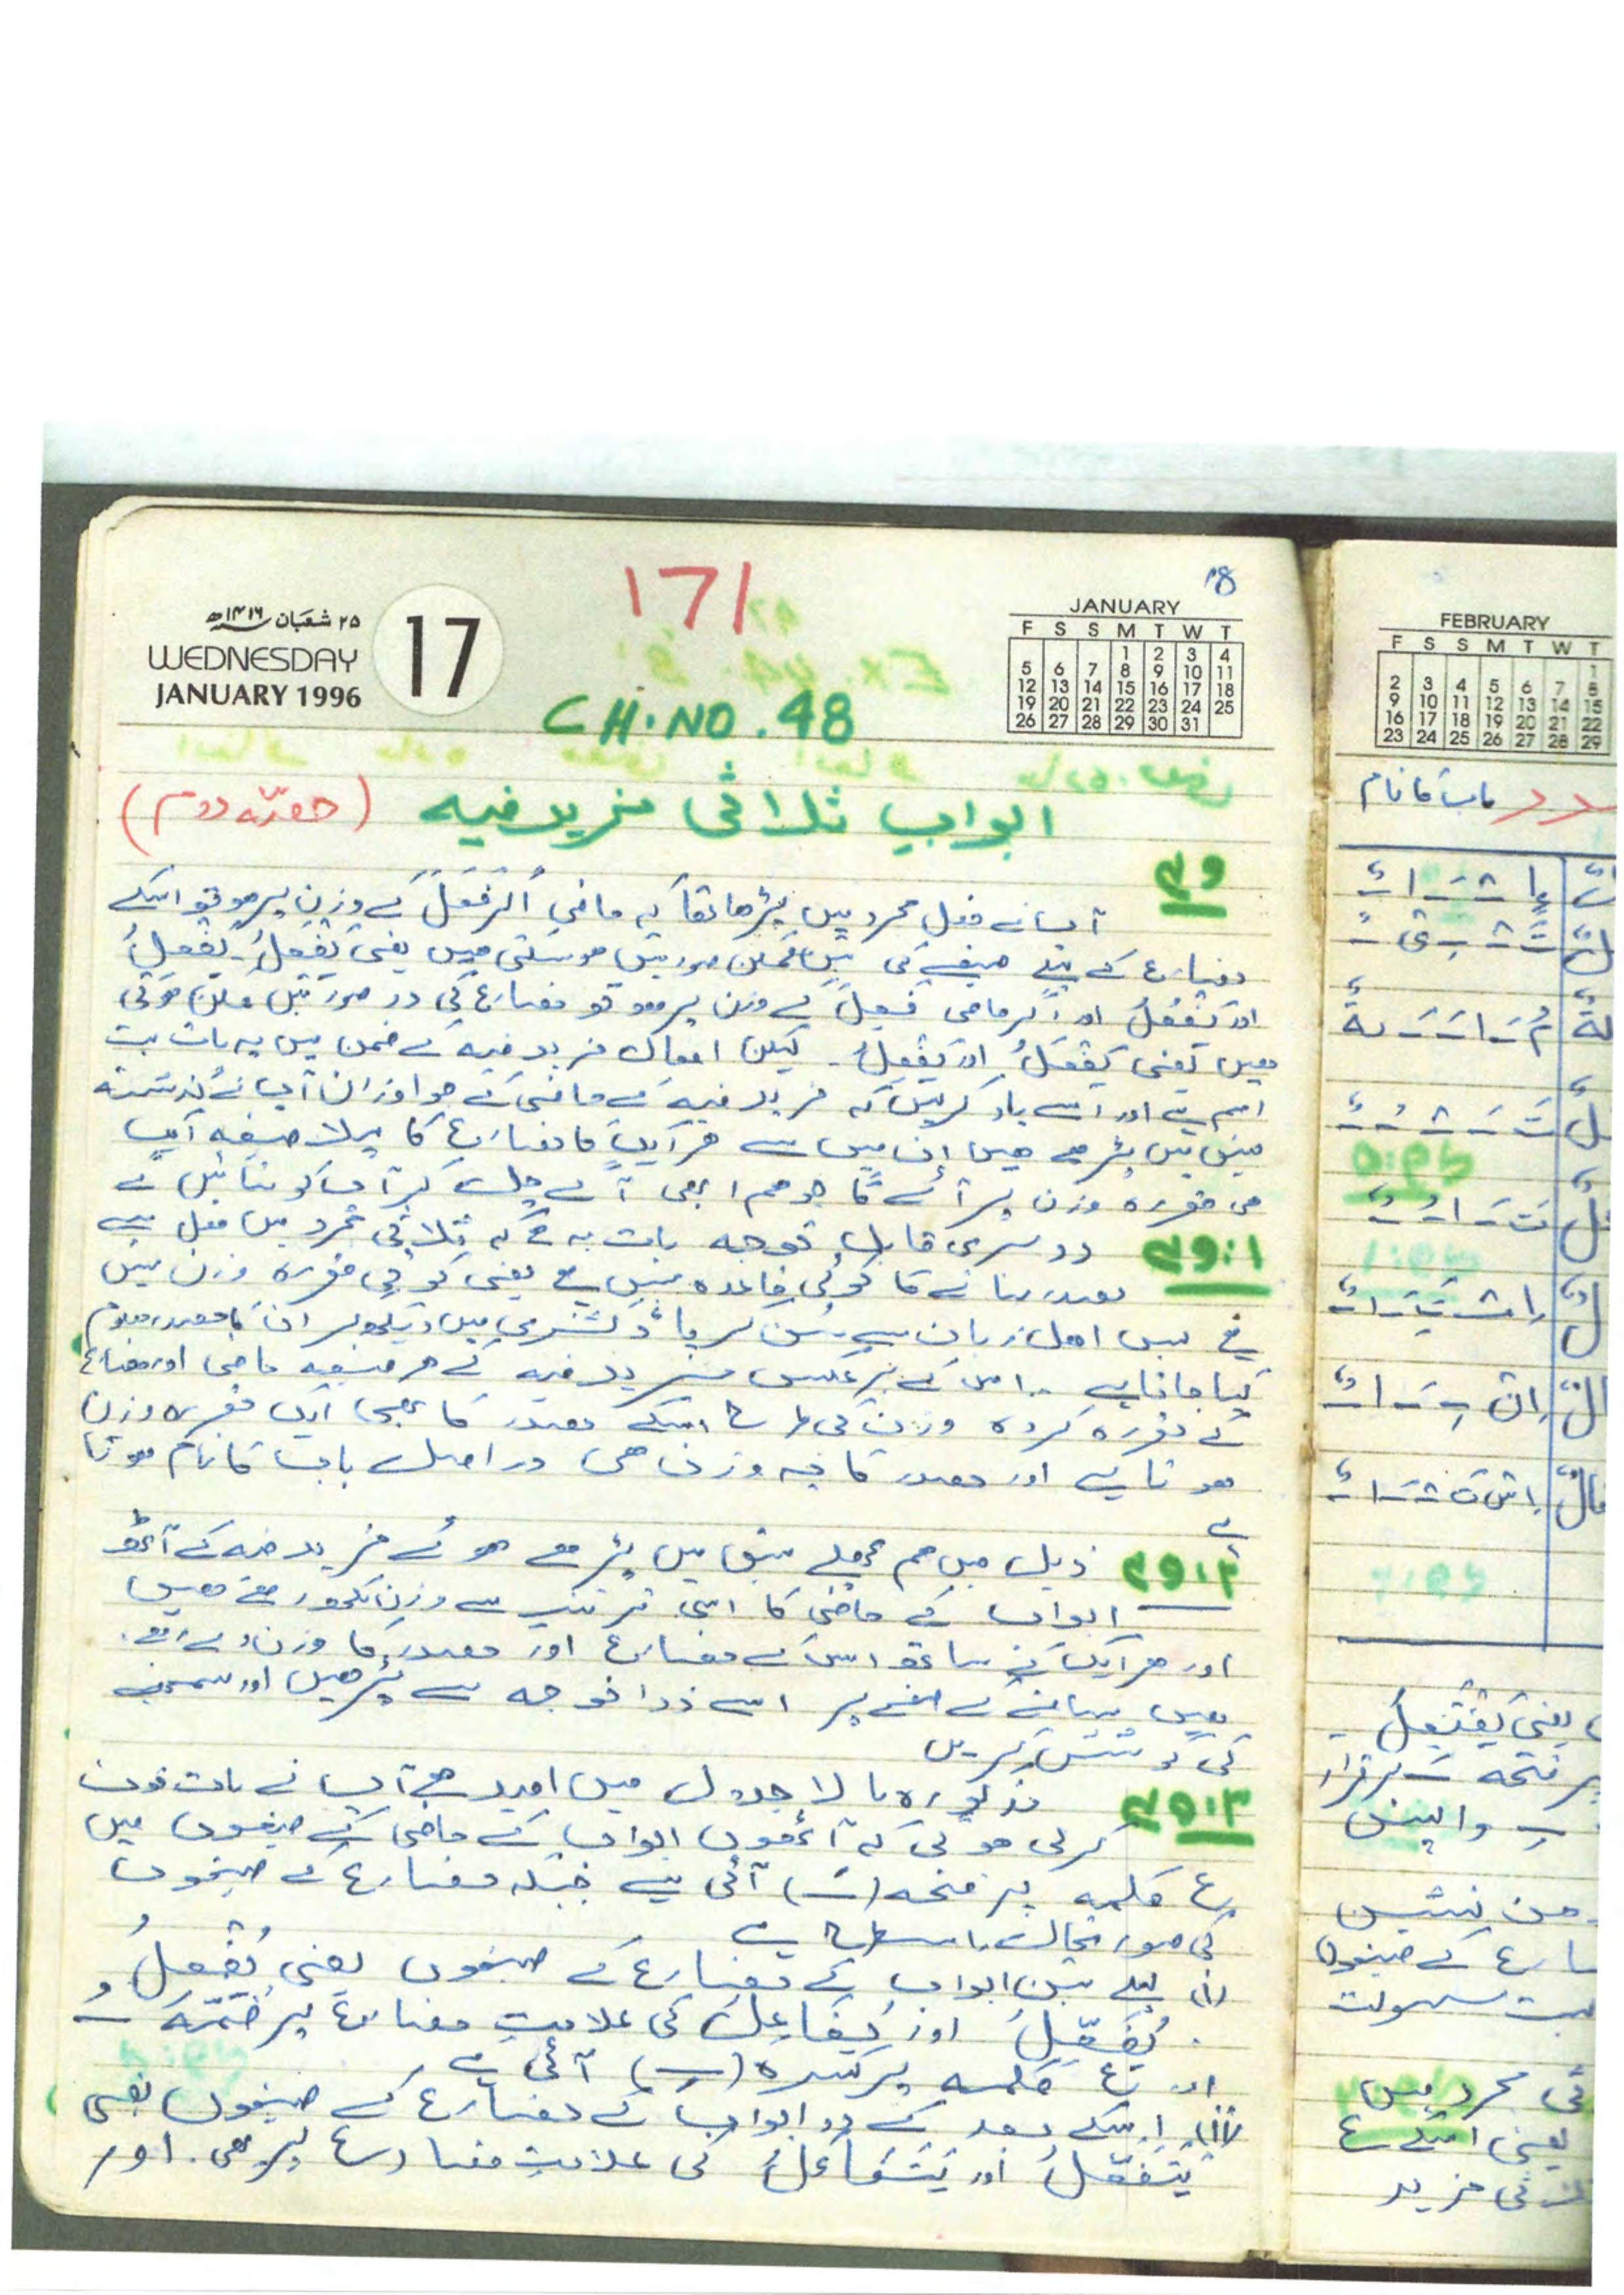 171
18
۲۵ شعبان ۱۴۱۶ھ
WEDNESDAY
JANUARY 1996
17
JANUARY
F S S M T W T
1 2 3 4
5 6 7 8 9 10 11
12 13 14 15 16 17 18
19 20 21 22 23 24 25
26 27 28 29 30 31
CH.NO.48
ابواب ثلاثی مزید فیہ (حصّہ دوم)
آپ نے فعل مجرد میں پڑھا تھا کہ ماضی اگر فَعَلَ کے وزن پر ہو تو اسکے
مضارع کے پہلے صیغے کی تین ممکن صورتیں ہو سکتی ہیں یعنی یَفْعَلُ۔ یَفْعِلُ
اور یَفْعُلُ اور اگر ماضی فَعِلَ کے وزن پر ہو تو مضارع کی دو صورتیں ممکن ہوتی
ہیں یعنی یَفْعَلُ اور یَفْعِلُ۔ لیکن افعال مزید فیہ کے ضمن میں یہ بات بہت
اہم ہے اور اسے یاد کرلیں کہ مزید فیہ کے ماضی کے جو اوزان آپ نے گذشتہ
سبق میں پڑھے ہیں ان میں سے ہر ایک کا مضارع کا پہلا صیغہ ایک
ہی مقررہ وزن پر آئے گا جو ہم ابھی آگے چل کر آپ کو بتائیں گے
۴۹:۱ دوسری قابل توجہ بات یہ ہے کہ ثلاثی مجرد میں فعل سے
مصدر بنانے کا کوئی قاعدہ نہیں ہے یعنی کوئی مقررہ وزن نہیں
ہے بس اہل زبان سے سن کر یا ڈکشنری میں دیکھ کر ان کا مصدر معلوم
کیا جاتا ہے ۔ اس کے برعکس مزید فیہ کے ہر صیغہ ماضی اور مضارع
کے مقررہ کردہ وزن کی طرح اسکے مصدر کا بھی ایک مقررہ وزن
ہوتا ہے اور مصدر کا یہ وزن ہی دراصل باب کا نام ہوتا
ہے
۴۹:۲ ذیل میں ہم پچھلے سبق میں پڑھے ہوئے مزید فیہ کے آٹھ
ابواب کے ماضی کا اسی ترتیب سے وزن لکھ رہے ہیں
اور ہر ایک کے ساتھ اس کے مضارع اور مصدر کا وزن دے رہے
ہیں سامنے کے صفحے پر اسے ذرا توجہ سے پڑھیں اور سمجھنے
کی کوشش کریں
۴۹:۳ مذکورہ بالا جدول میں امید ہے آپ نے بات نوٹ
کرلی ہوگی کہ آٹھوں ابواب کے ماضی کے صیغوں میں
ع کلمہ پر فتحہ (ـَ) آئی ہے جبکہ مضارع کے صیغوں
کی صورتحال اسطرح ہے
(i) پہلے تین ابواب کے مضارع کے صیغوں یعنی یُفْعِلُ
یُفَعِّلُ اور یُفَاعِلُ کی علامتِ مضارع پر ضمّہ ـُ
اور ع کلمہ پر کسرہ (ـِ) آئی ہے
(ii) اسکے بعد کے دو ابواب کے مضارع کے صیغوں یعنی
یَتَفَعَّلُ اور یَتَفَاعَلُ کی علامتِ مضارع پر بھی اور
FEBRUARY
F S S M T W T
1
2 3 4 5 6 7 8
9 10 11 12 13 14 15
16 17 18 19 20 21 22
23 24 25 26 27 28 29
باب کا نام
یعنی یَفْتَعِلُ
پر فتحہ ـَ برقرار
ذہن نشین
مضارع کے صیغوں
بہت سہولت
مجرد میں
یعنی اسکے ع
ثلاثی مزید